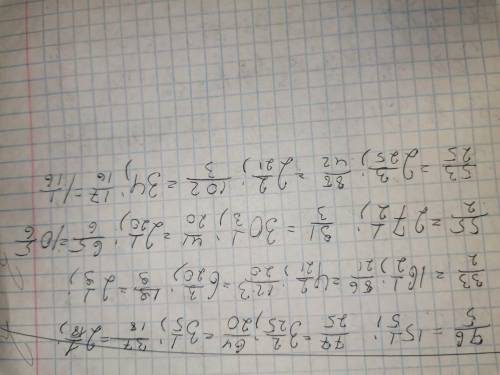 76/5 = 15 1/5); 77/25 = 3 2/25; 64/20 = 3 1/5); 37/18 = 2 1/18);
33/2 = 16 1/2); 86/21 = 4 2/21); 123/20 = 6 3/20); 19/9 = 2 1/9);
55/2 = 27 1/2); 91/3 = 30 1/3); 41/20 = 2 1/20); 65/6 = 10 5/6
53/25 = 2 3/25); 88/42 = 2 2/21); 102/3 = 34); 17/16 = 1 1/16